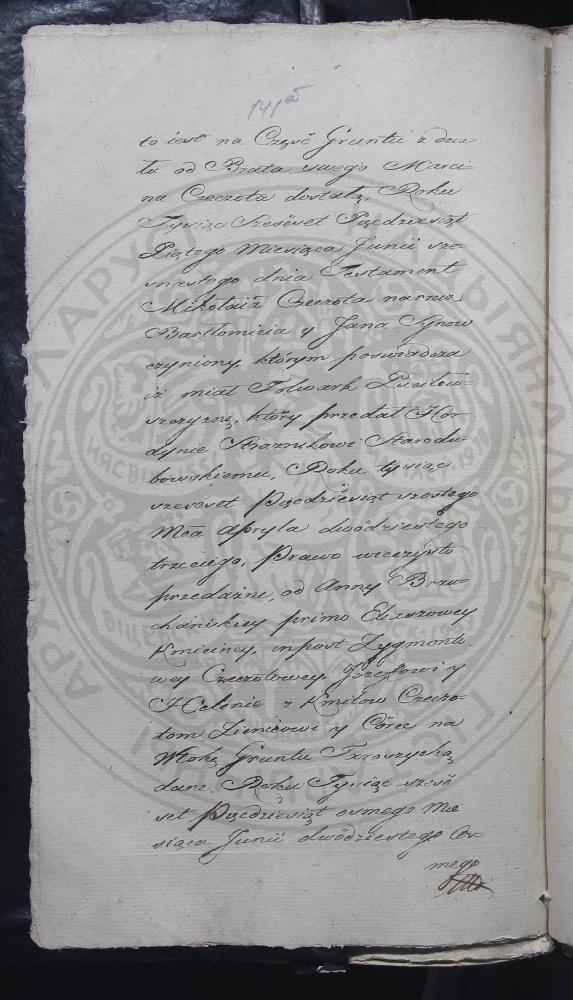 141
to iest na Część Gruntu z dzia-
łu od Brata swego Marci-
na Czeczota dostałą, Roku
Tysiąc Szesćset Pięcdziesiąt
Piątego Miesiąca Junii sze-
snastego dnia Testament
Mikołaia Czeczota na rzecz
Bartłomieia y Jana Synow
czyniony, którym poswiadcza
iż miał Folwark
szczyznę, który przedał Hor-
dynie Straznikowi Starodu-
bowskiemu, Roku tysiąc
szescset Pięcdziesiąt szostego
Mca Apryla dwódziestego
trzeciego, Prawo wieczysto
przedażne, od Anny Brzu-
chanskiey primo Eliaszowey
Kmiciney, inpost Zygmonto
wey Czeczotowey, Józefowi y
Helenie z Kmitow Czeczo-
tom Zieńcowi y Córce na
Włokę Gruntu Taroszycką
dane. Roku Tysiąc szesc
set Pięcdziesiąt osmego Mie
siąca Junii dwódziestego Os-
mego